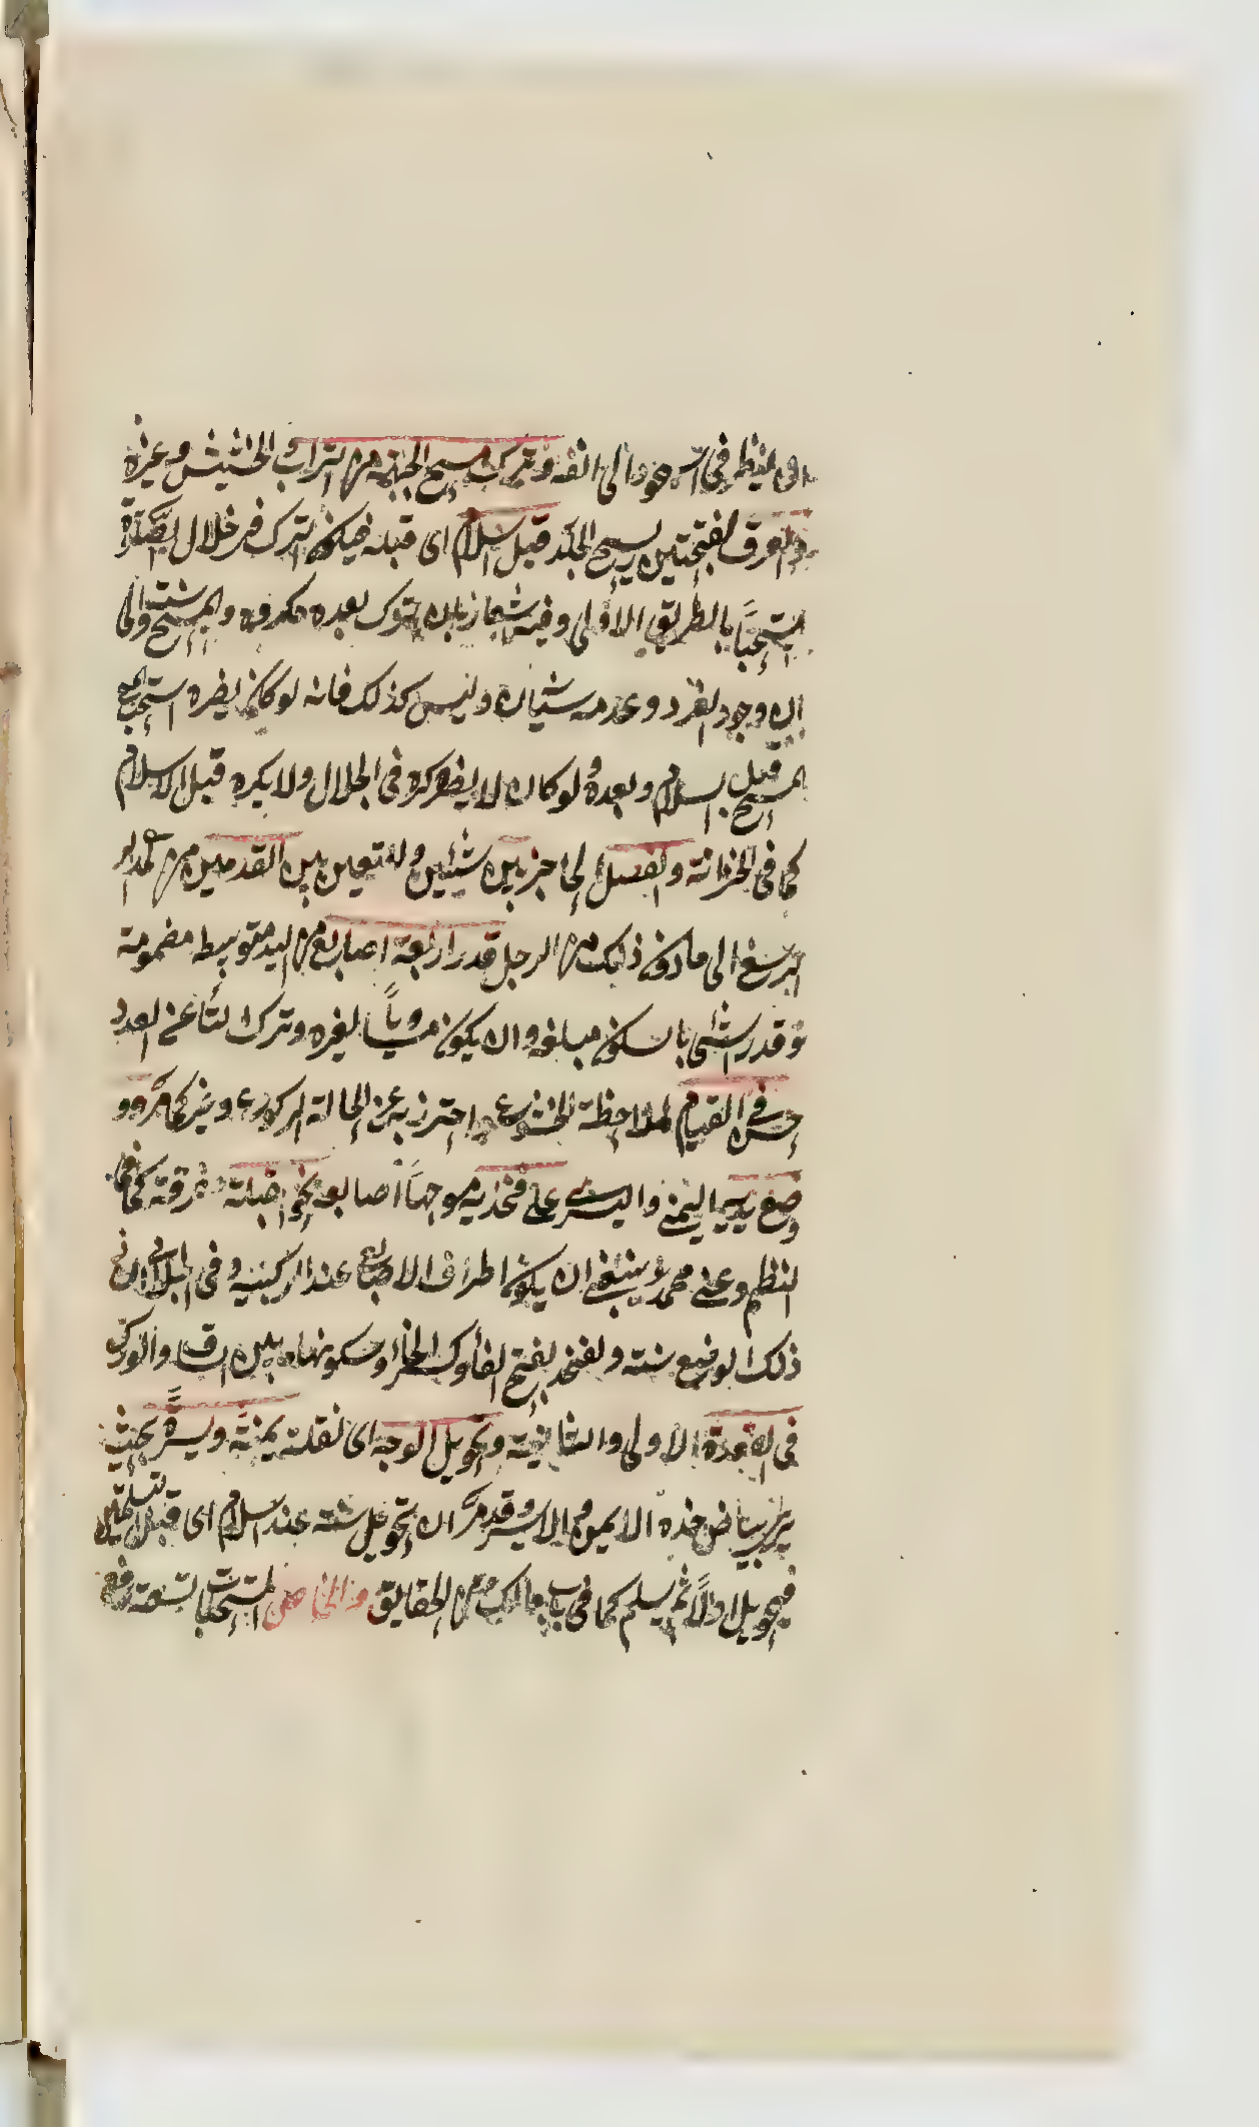 او لينظر في السجود الى انفه وترك مسح الجبهة من التراب والحشيش وغيره
والعرق بفتحتين رسح الجلد قبل السلام اى قبله فيكون الترك في خلال الصلوة
مستحبا بالطريق الاولى وفيه اشعار بان الترك بعده مكروه والمسح
ان وجود الفرد وعدمه سيان وليس كذلك فانه لو كان يضره استحب
المسح قبل السلام وبعده ولو كان لا يضر كره في الخلال ولا يكره قبل السلام
كما في الخزانة والفصل اى الحاجز بين شيئين والتعين بين القدمين من
الرسغ الى ما دون ذلك من الرجل قدر اربعة اصابع من اليد متوسطه مضمومة
وقدر الشئ بالسكون مبلغه وان يكون مساويا لغيره وترك التاء عن العدد
حسن في القيام لملاحظة الخشوع واحترز به عن الحالة الركوع وغيره كما مر و
وضع يديه اليمنى واليسرى على فخذيه موجها اصابعه نحو القبلة مفرقة كما في
النظم وعن محمد ينبغي ان يكون اطراف الاصابع عند الركبتيه وفي الجلابي ان
ذلك الوضع سنة والفخذ بفتح الفاء وكسر الخاء او سكونها ما بين الساق والورك
في القعدة الاولى والثانية وتحويل الوجه اى نقله يمنة ويسرة بحيث
يرى بياض خده الايمن والايسر وقد مر ان تحويل سنة عند السلام اى قبل التسليمتين
فيحويل اولا ثم يسلم كما في باب مالك من الحقايق والخامس المستحبات تسعة رفع